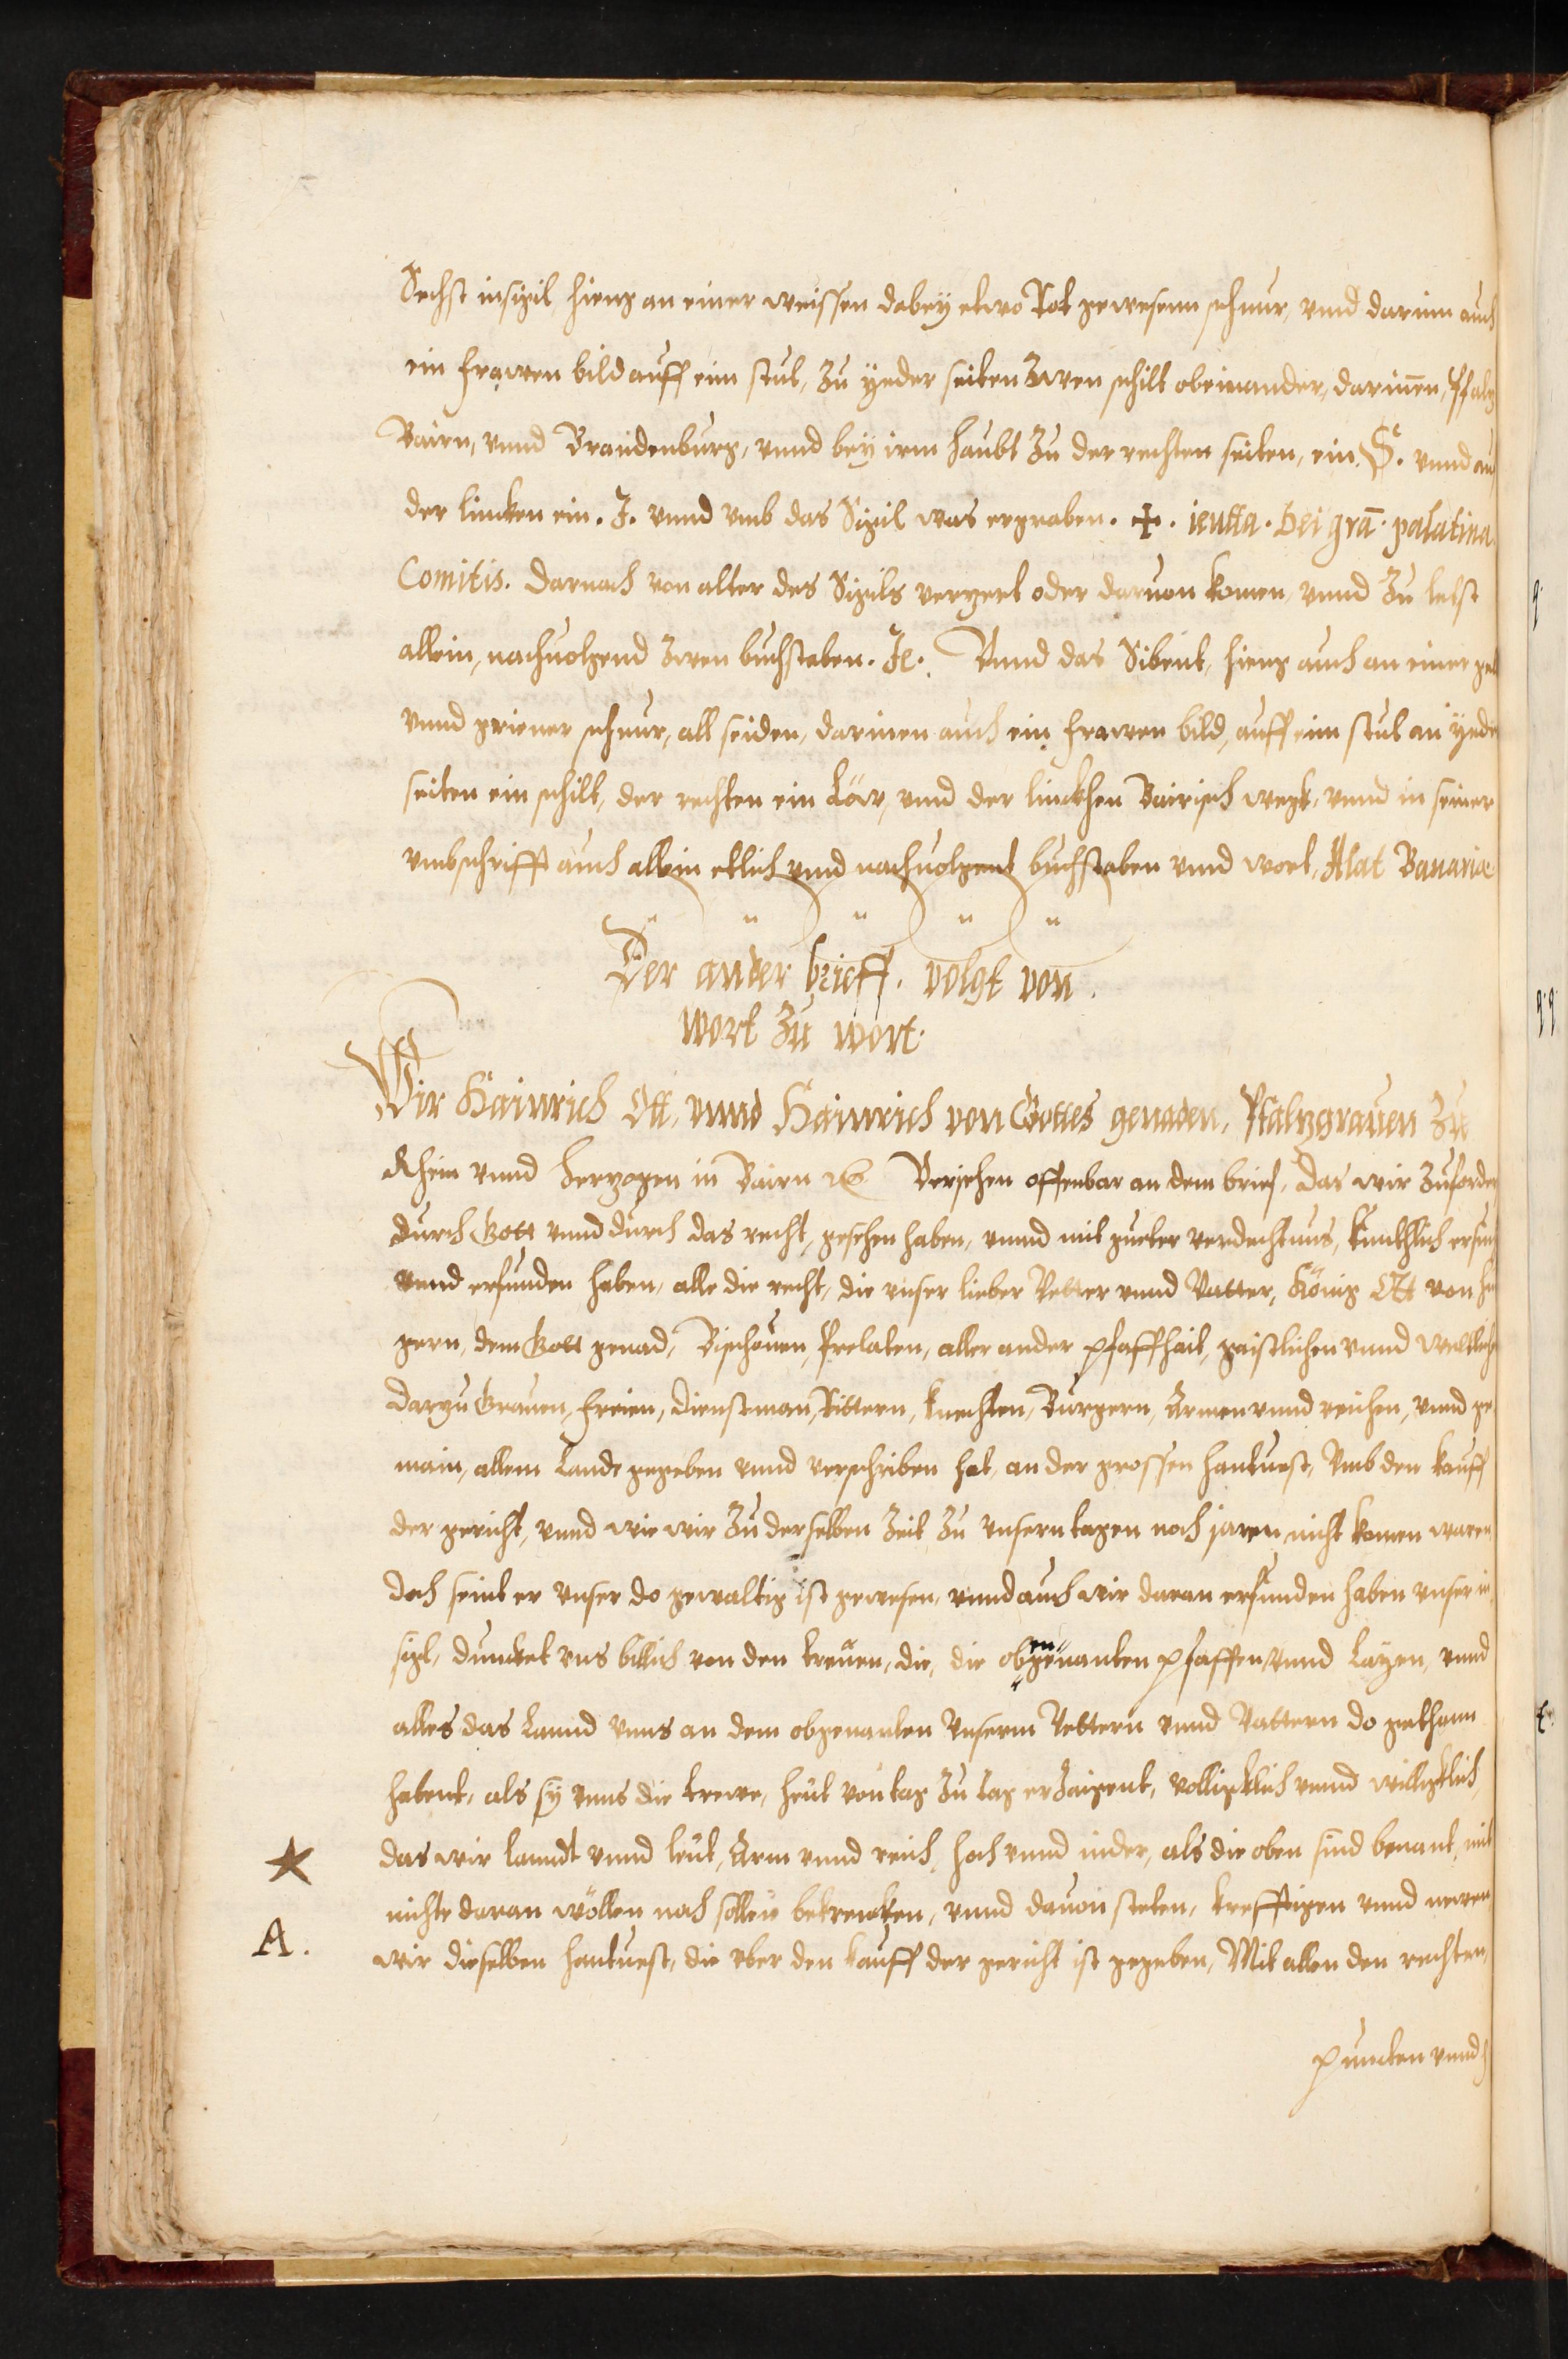 Sechst insigil, hieng an einer weissen dabey etwo Rot gewesenn schnur, vnnd darinn auch
ein frawen bild auff eim stul, Zu yeder seiten Zwen schilt obeinander, darinnen, Pfaltz
Bairn, vnnd Brandenburg, vnnd bey irm haubt Zu der rechten seiten, ein S. vnnd an
der lincken ein. J. vnnd vmb das Sigil was ergraben. ✠. ieutta. Dei grā. palatina.
Comitis. Darnach von alter des Sigils verzert oder daruon komen, vnnd Zu letst
allein, nachuolgend Zwen buchstaben. Je. Vnnd das Sibent, hieng auch an einer gel
vnnd griener schnur, all seiden, darinen auch ein frawen bild, auff eim stul an yeder
seiten ein schilt, der rechten ein Löw, vnnd der linckhen Bairisch wegk, vnnd in seiner
vmbschrifft auch allein etlich vnnd nachuolgent buchstaben vnnd wort, Alat Bauariæ
Der ander brieff. volgt von.
wort Zu wort.
Wir Hainrich Ott, vnnd Hainrich von Gottes genaden, Pfaltzgrauen Zu
Rhein vnnd Herzogen in Bairn ꝛc. Verjehen offenbar an dem brief, das wir Zuforder
durch Gott vnnd durch das recht, gesehen haben, vnnd mit gueter verdachtnus, kuntlich
vnnd erfunden haben, alle die recht, die vnser lieber Vetter vnnd Vatter, König Ott von
gern, dem Gott genad, Bischouen, Prelaten, aller ander pfaffhait, gaistlichen vnnd weltlichen
darzu Grauen, freien, dienstman, Rittern, knechten, Burgern, Armen vnnd reichen, vnnd ge
main, allem Lande gegeben vnnd verschriben hat, an der grossen hantuest, Vmb den kauff
der gericht, vnnd wie wir Zu derselben Zeit Zu vnsern tagen noch jaren nicht komen waren,
doch seint er vnser do gewaltig ist gewesen, vnnd auch wir daran erfunden haben vnser in
sigl, duncket vns billich von den treuen, die, die obgenanten pfaffen, vnnd Layen, vnnd
alles das Lannd vnns an dem obgenanten Vnserm Vettern vnnd Vattern do gethann
habent, als sy vnns die trewe, heut von tag Zu tag erZaigent, volligklich vnnd willigklich,
das wir lanndt vnnd leüt, Arm vnnd reich, hoch vnnd nider, als die oben sind benant, mit
nichte daran wöllen noch sollen bekrencken, vnnd dauon steten, krefftigen vnnd newen
wir dieselben hantuest, die vber den kauff der gericht ist gegeben, Mit allen den rechten,
puncten vnnd
A.